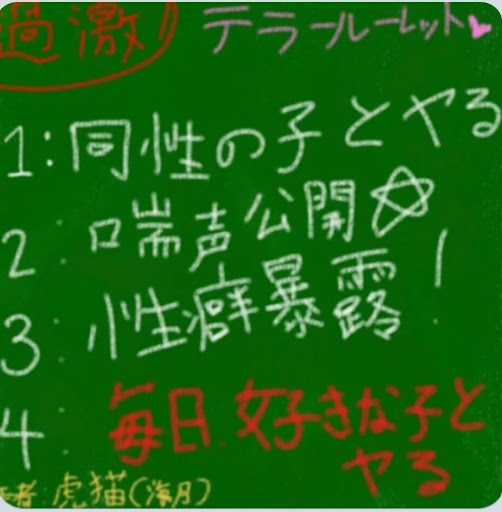 過激!!
テラールーレット
1:同性の子とヤる
2:喘声公開☆
3:性癖暴露!
4:毎日.好きな子と
ヤる
者:虎猫(海月)